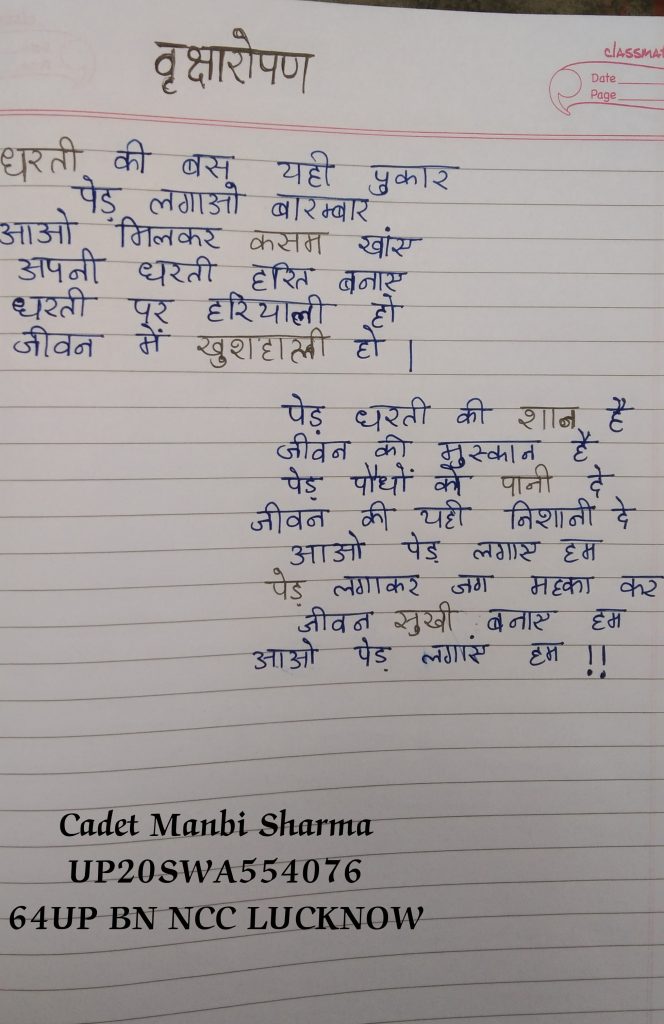 वृक्षारोपण
classma
Date
Page
धरती की बस यही पुकार
पेड़ लगाओ बारम्बार
आओ मिलकर कसम खांए
अपनी धरती हरित बनाए
धरती पर हरियाली हो
जीवन में खुशहाली हो |
पेड़ धरती की शान है
जीवन की मुस्कान है
पेड़ पौधों को पानी दे
जीवन की यही निशानी दे
आओ पेड़ लगाए हम
पेड़ लगाकर जग महका कर
जीवन सुखी बनाए हम
आओ पेड़ लगांए हम !!
Cadet Manbi Sharma
UP20SWA554076
64UP BN NCC LUCKNOW